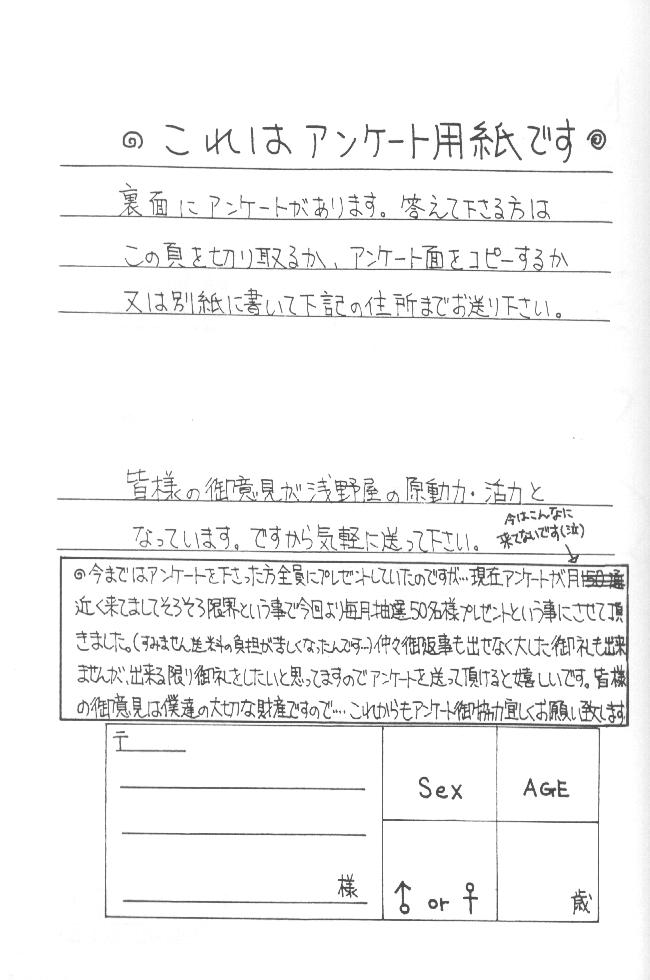 これはアンケート用紙です
裏面にアンケートがあります。答えて下さる方は
この頁を切り取るか、アンケート面をコピーするか
又は別紙に書いて下記の住所までお送り下さい。
皆様の御意見が浅野屋の原動力・活力と
なっています。ですから気軽に送って下さい。
今はこんなに
来てないです(泣)
◎今まではアンケートを下さった方全員にプレゼントしていたのですが…現在アンケートが月150通
近く来てましてそろそろ限界という事で今回より毎月抽選50名様プレゼントという事にさせて頂
きました。(すみません送料の負担が苦しくなったんです…)仲々御返事も出せなく大した御礼も出来
ませんが、出来る限り御礼をしたいと思ってますのでアンケートを送って頂けると嬉しいです。皆様
の御意見は僕達の大切な財産ですので…これからもアンケート御協力宜しくお願い致します
〒
Sex
AGE
様
♂ or ♀
歳